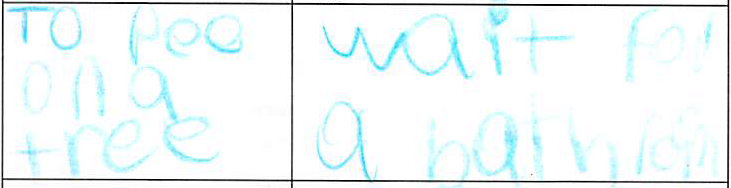 To pee
on a
tree
wait for
a bathroom